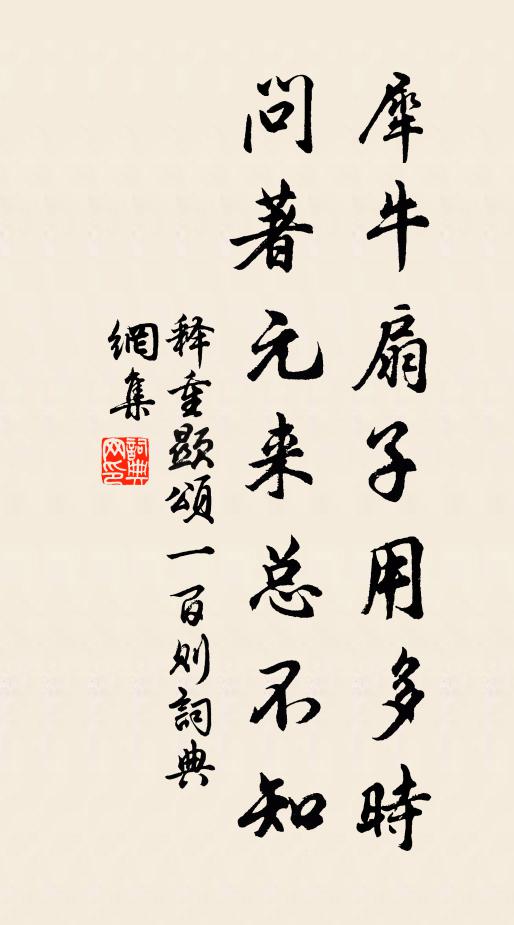 犀牛扇子用多時
問著元来总不知
释重顯頌一百则詞典
網集
詞典网印